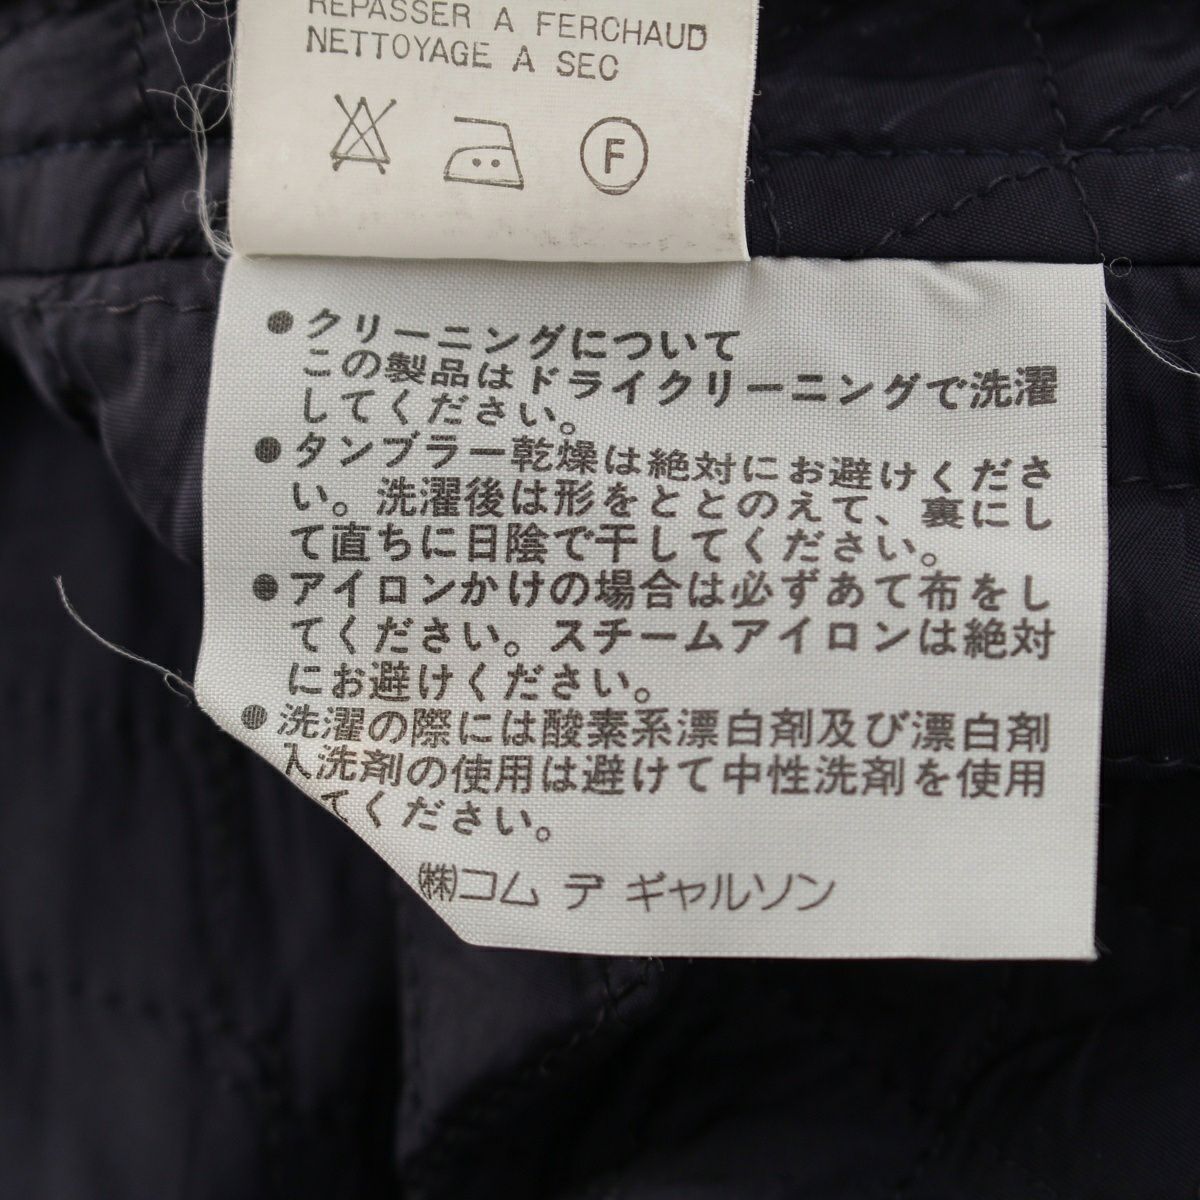 REPASSER A FERCHAUD
NETTOYAGE A SEC
F
●クリーニングについて
この製品はドライクリーニングで洗濯
してください。
●タンブラー乾燥は絶対にお避けくださ
い。洗濯後は形をととのえて、裏にし
て直ちに日陰で干してください。
●アイロンかけの場合は必ずあて布をし
てください。スチームアイロンは絶対
にお避けください。
●洗濯の際には酸素系漂白剤及び漂白剤
入洗剤の使用は避けて中性洗剤を使用
てください。
㈱コム デ ギャルソン